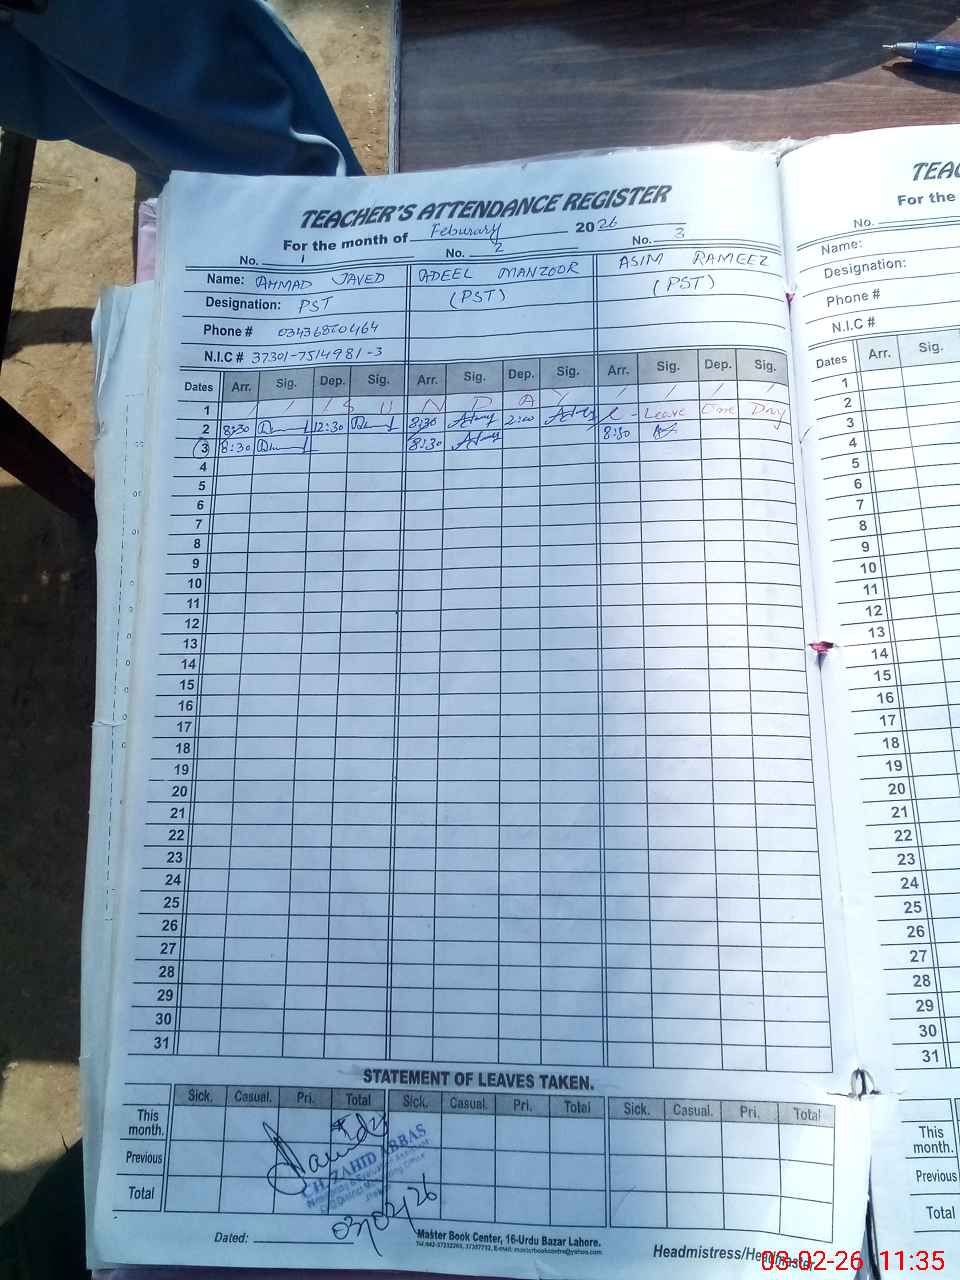 TEACHER'S ATTENDANCE REGISTER
For the month of Feburary 2026
No. 1 No. 2 No. 3
Name: AHMAD JAVED ADEEL MANZOOR ASIM RAMEEZ
Designation: PST (PST) (PST)
Phone #
N.I.C # 37301-7514981-3
Dates Arr. Sig. Dep. Sig. Arr. Sig. Dep. Sig. Arr. Sig. Dep. Sig.
1 / / / S U N D A Y / / / /
2 8:30 12:30 8:30 2:00 Leave One Day
3 8:30 8:30 8:30
4
5
6
7
8
9
10
11
12
13
14
15
16
17
18
19
20
21
22
23
24
25
26
27
28
29
30
31
STATEMENT OF LEAVES TAKEN.
Sick. Casual. Pri. Total Sick. Casual. Pri. Total Sick. Casual. Pri. Total
This month.
Previous
Total
CH. ZAHID ABBAS
03/02/26
Dated:
Master Book Center, 16-Urdu Bazar Lahore.
Headmistress/Headmaster
TEAC
For the
No.
Name:
Designation:
Phone #
N.I.C #
Dates Arr. Sig.
1
2
3
4
5
6
7
8
9
10
11
12
13
14
15
16
17
18
19
20
21
22
23
24
25
26
27
28
29
30
31
This month.
Previous
Total
03-02-26 11:35